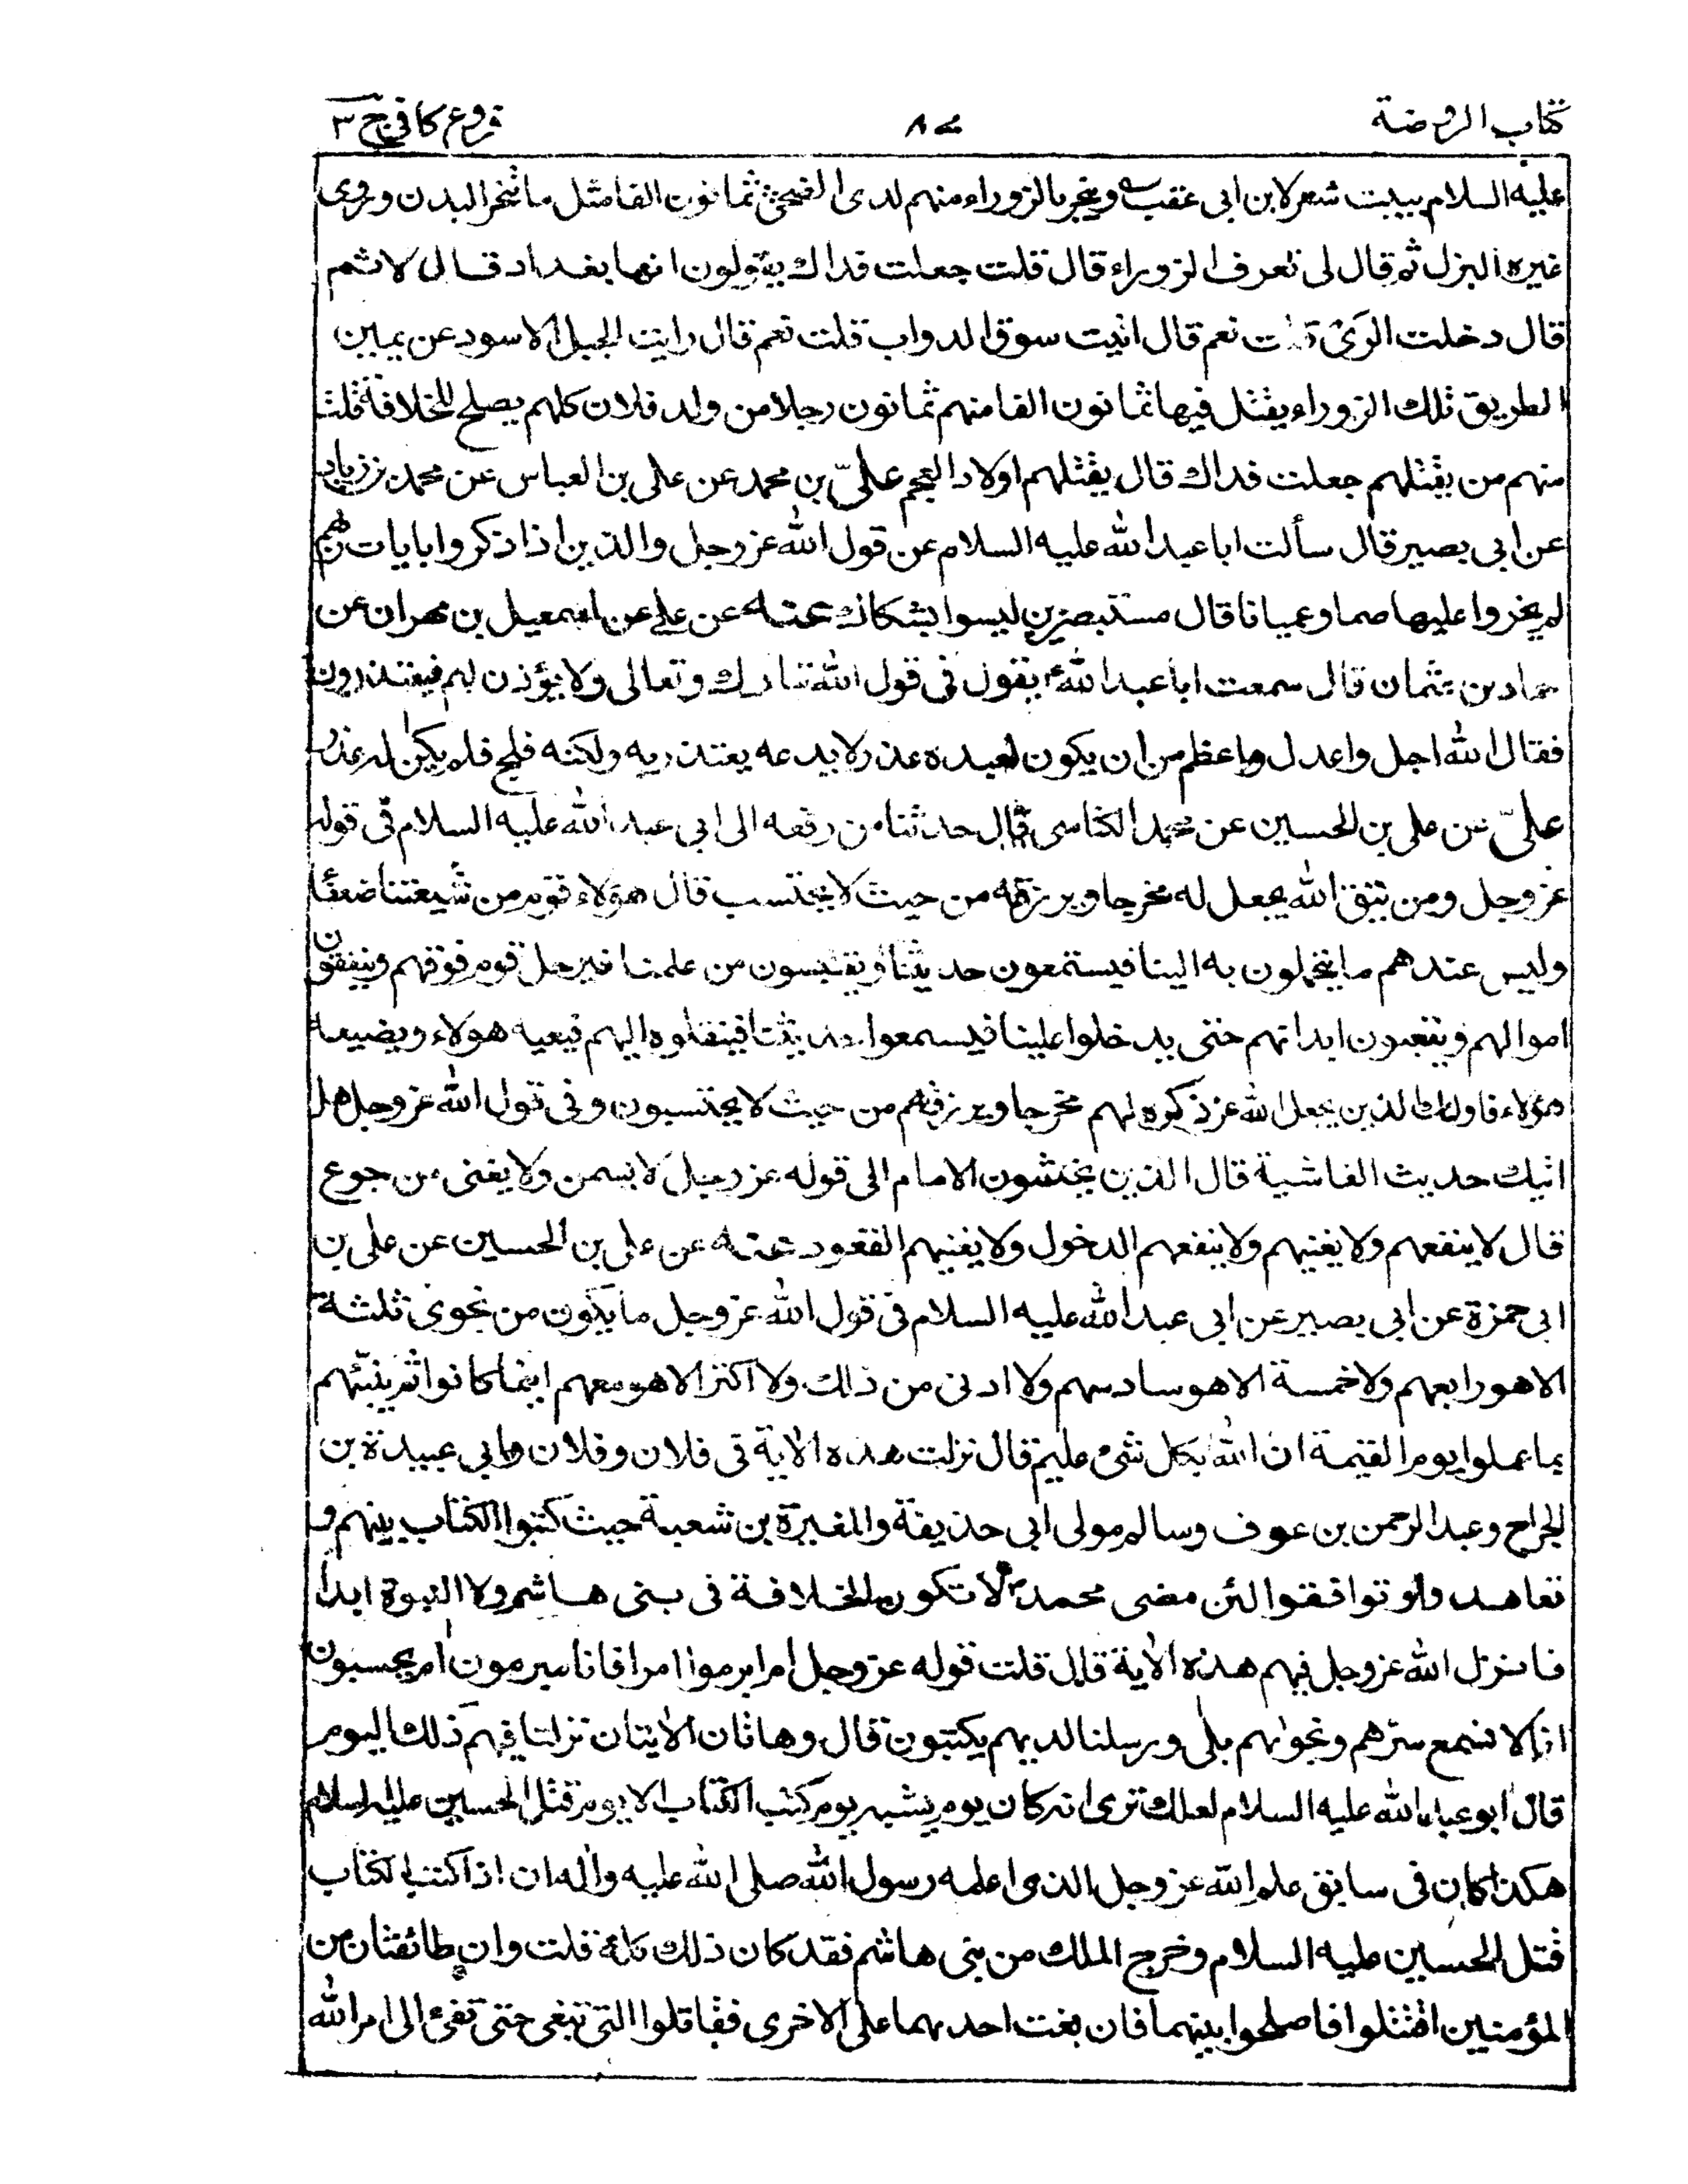 كتاب الروضة
فروع كافي ج ٣
عليه السلام ببيت شعر لابن ابى عقب وينحر بالزوراء منهم لدى الضحى ثمانون الفا مثل ما تنحر البدن وروى
غيره البزل ثم قال لى تعرف الزوراء قال قلت جعلت فداك يقولون انها بغداد قال لا ثم
قال دخلت الرى قلت نعم قال اتيت سوق الدواب قلت نعم قال رايت الجبل الاسود عن يمين
الطريق تلك الزوراء يقتل فيها ثمانون الفا منهم ثمانون رجلا من ولد فلان كلهم يصلح للخلافة قلت
منهم من يقتلهم جعلت فداك قال يقتلهم اولاد العجم علىّ بن محمد عن على بن العباس عن محمد بن زياد
عن ابى بصير قال سألت ابا عبد الله عليه السلام عن قول الله عز وجل والذين اذا ذكروا بايات ربهم
لم يخروا عليها صما وعميانا قال مستبصرين ليسوا بشكاك عنه عن على عن اسمعيل بن مهران عن
حماد بن عثمان قال سمعت ابا عبد الله ع يقول فى قول الله تبارك وتعالى ولا يؤذن لهم فيعتذرون
فقال الله اجل واعدل واعظم من ان يكون لعبده عذر لا يدعه يعتذر به ولكنه فلج فلم يكن له عذر
علىّ عن على بن الحسين عن محمد الكناسى قال حدثنا من رفعه الى ابى عبد الله عليه السلام فى قوله
عز وجل ومن يتق الله يجعل له مخرجا ويرزقه من حيث لا يحتسب قال هؤلاء قوم من شيعتنا ضعفا
وليس عندهم ما يتحملون به الينا فيستمعون حديثنا ويقتبسون من علمنا فيرحل قوم فوقهم وينفقون
اموالهم ويتعبون ابدانهم حتى يدخلوا علينا فيسمعوا حديثنا فينقلوه اليهم فيعيه هولاء ويضيعه
هؤلاء فاولئك الذين يجعل الله عز ذكره لهم مخرجا ويرزقهم من حيث لا يحتسبون وفى قول الله عز وجل هل
اتيك حديث الغاشية قال الذين يغشون الامام الى قوله عز وجل لا يسمن ولا يغنى من جوع
قال لا ينفعهم ولا يغنيهم ولا ينفعهم الدخول ولا يغنيهم القعود عنه عن على بن الحسين عن على بن
ابى حمزة عن ابى بصير عن ابى عبد الله عليه السلام فى قول الله عز وجل ما يكون من نجوى ثلثة
الا هو رابعهم ولا خمسة الا هو سادسهم ولا ادنى من ذلك ولا اكثر الا هو معهم اينما كانوا ثم ينبّئهم
بما عملوا يوم القيمة ان الله بكل شئ عليم قال نزلت هذه الاية فى فلان وفلان وابى عبيدة بن
الجراح وعبد الرحمن بن عوف وسالم مولى ابى حذيفة والمغيرة بن شعبة حيث كتبوا الكتاب بينهم و
تعاهدوا وتوافقوا لئن مضى محمد ص لا تكون الخلافة فى بنى هاشم ولا النبوة ابدا
فانزل الله عز وجل فيهم هذه الاية قال قلت قوله عز وجل ام ابرموا امرا فانا مبرمون ام يحسبون
انا لا نسمع سرّهم ونجوٰيهم بلى ورسلنا لديهم يكتبون قال وهاتان الايتان نزلتا فيهم ذلك اليوم
قال ابو عبد الله عليه السلام لعلك ترى انه كان يوم يشبه يوم كتب الكتاب الا يوم قتل الحسين عليه السلام
هكذا كان فى سابق علم الله عز وجل الذى اعلمه رسول الله صلى الله عليه واله ان اذا كتب الكتاب
قتل الحسين عليه السلام وخرج الملك من بنى هاشم فقد كان ذلك كله قلت وان طائفتان من
المؤمنين اقتتلوا فاصلحوا بينهما فان بغت احديهما على الاخرى فقاتلوا التى تبغى حتى تفئ الى امر الله